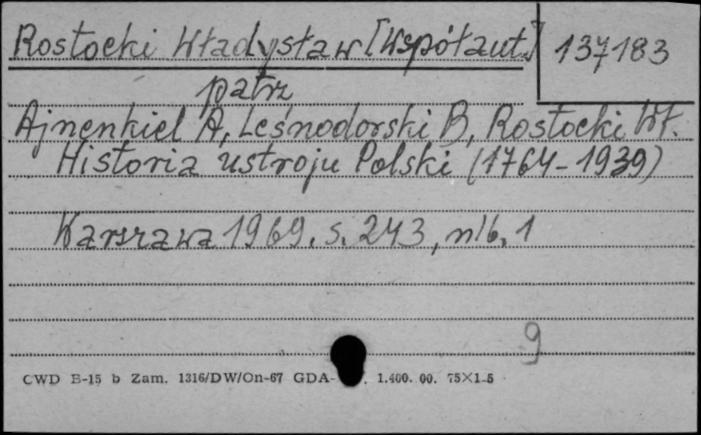 Rostocki Władysław [Współaut.] 137183
patrz
Ajnenkiel A, Leśnodorski B, Rostocki Wł.
Historia ustroju Polski (1764-1939)
Warszawa 1969. s. 243, nlb. 1
9
CWD B-15 b Zam. 1316/DW/On-67 GDA- 1.400. 00. 75X1 5